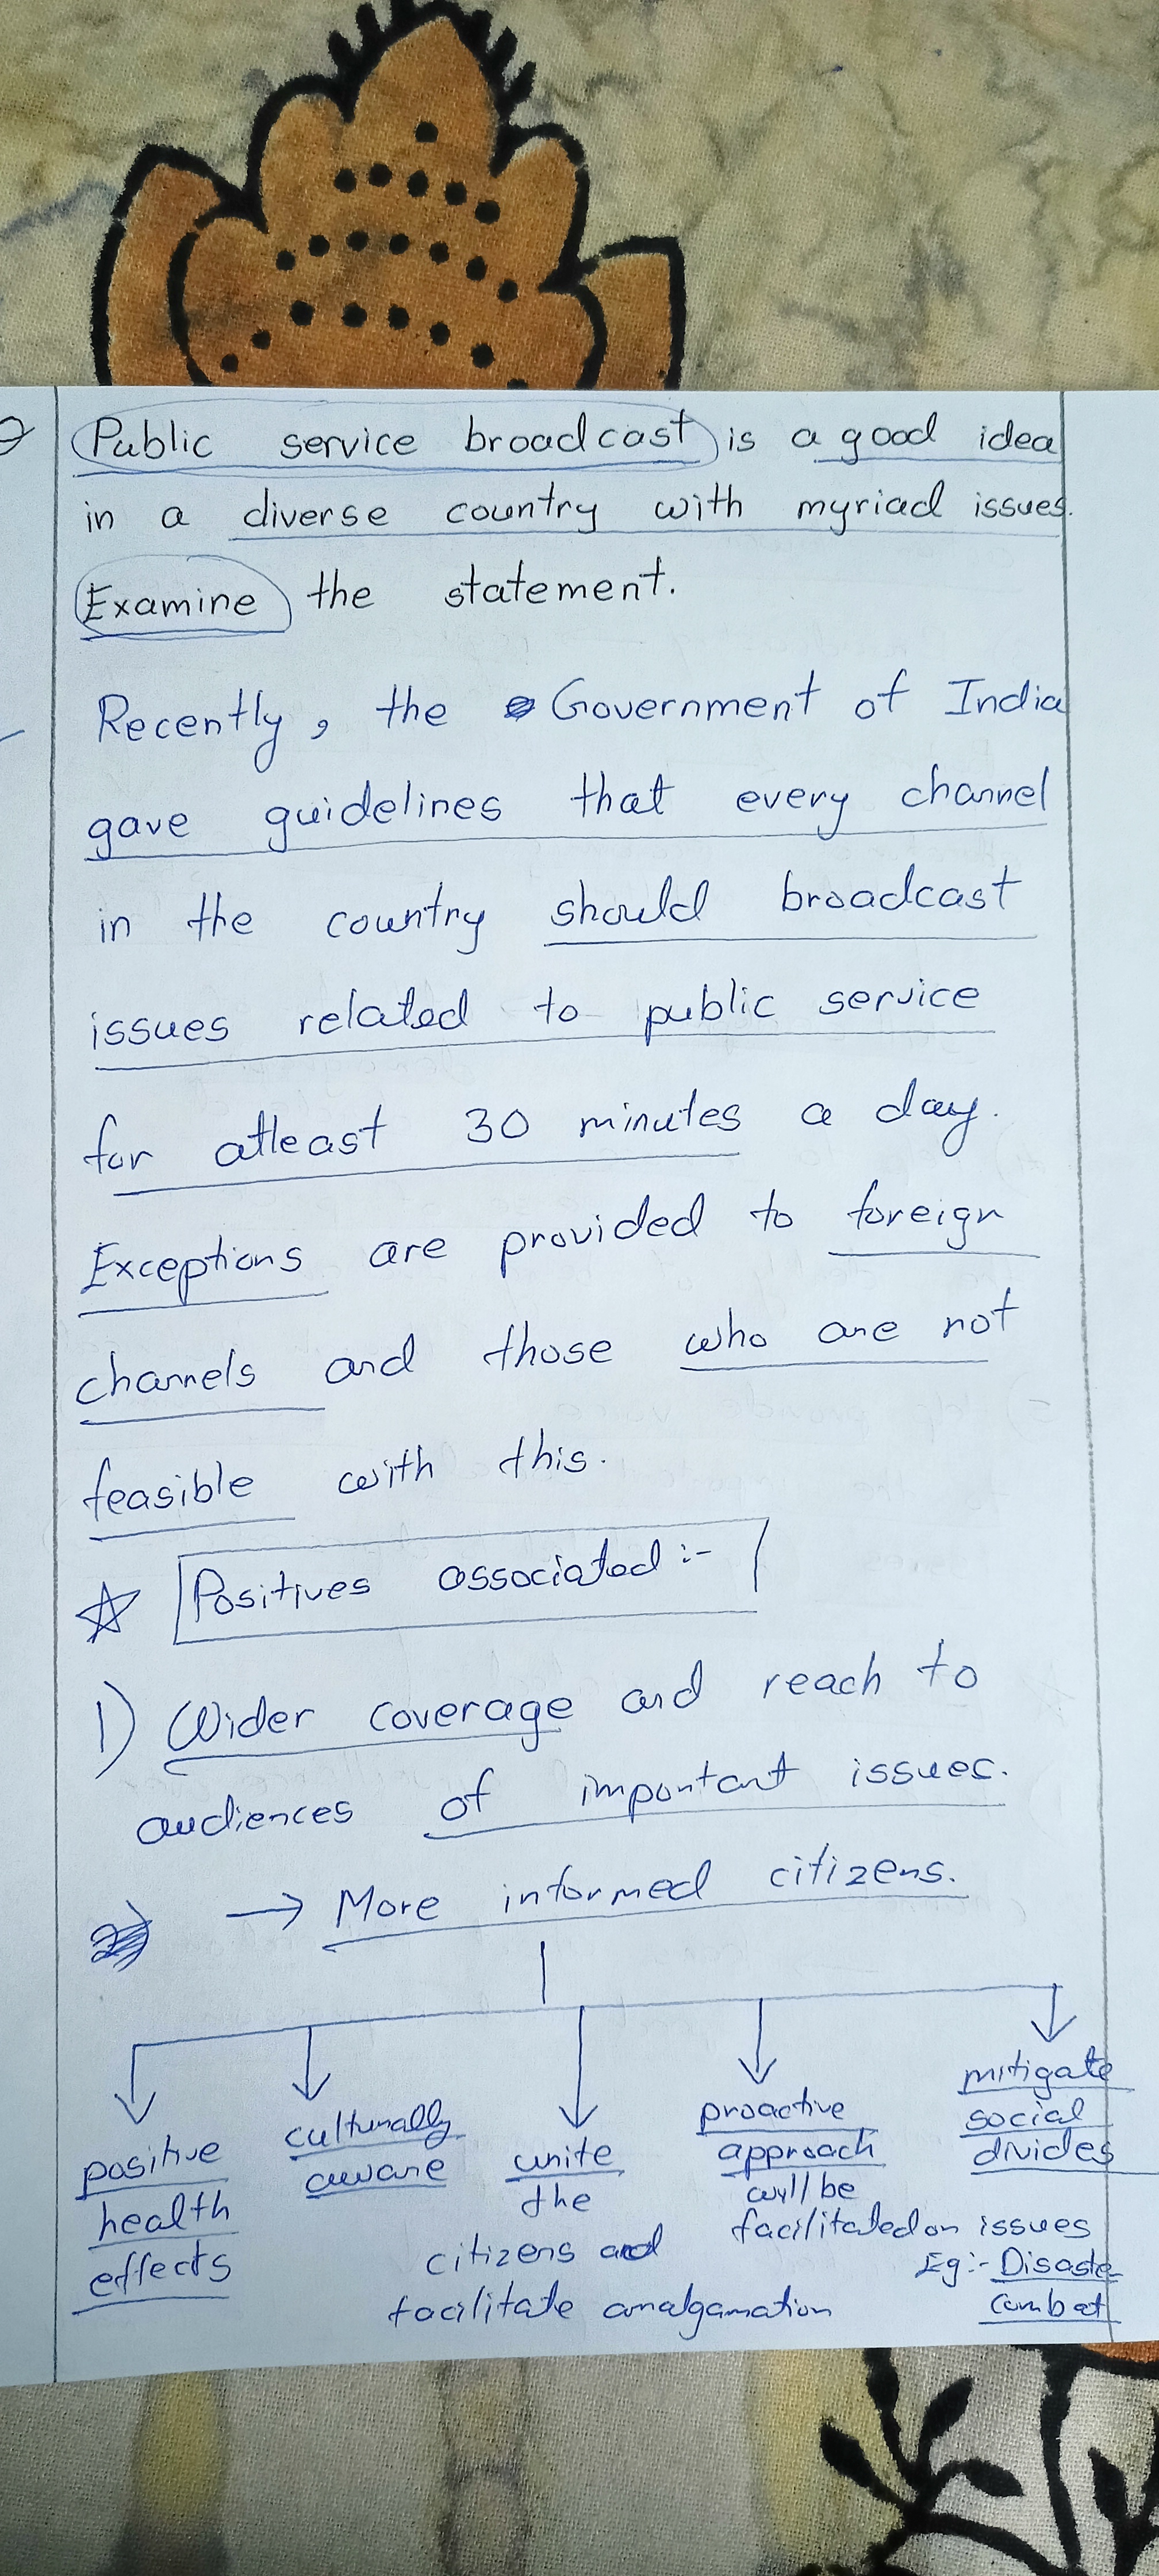 Public service broadcast is a good idea
in a diverse country with myriad issues.
Examine the statement.
Recently, the Government of India
gave guidelines that every channel
in the country should broadcast
issues related to public service
for atleast 30 minutes a day.
Exceptions are provided to foreign
channels and those who are not
feasible with this.
Positives associated :-
1) Wider coverage and reach to
audiences of important issues.
→ More informed citizens.
positive
health
effects
culturally
aware
unite
the
citizens and
facilitate amalgamation
proactive
approach
will be
facilitated on issues
Eg:- Disaster
combat
mitigate
social
divides